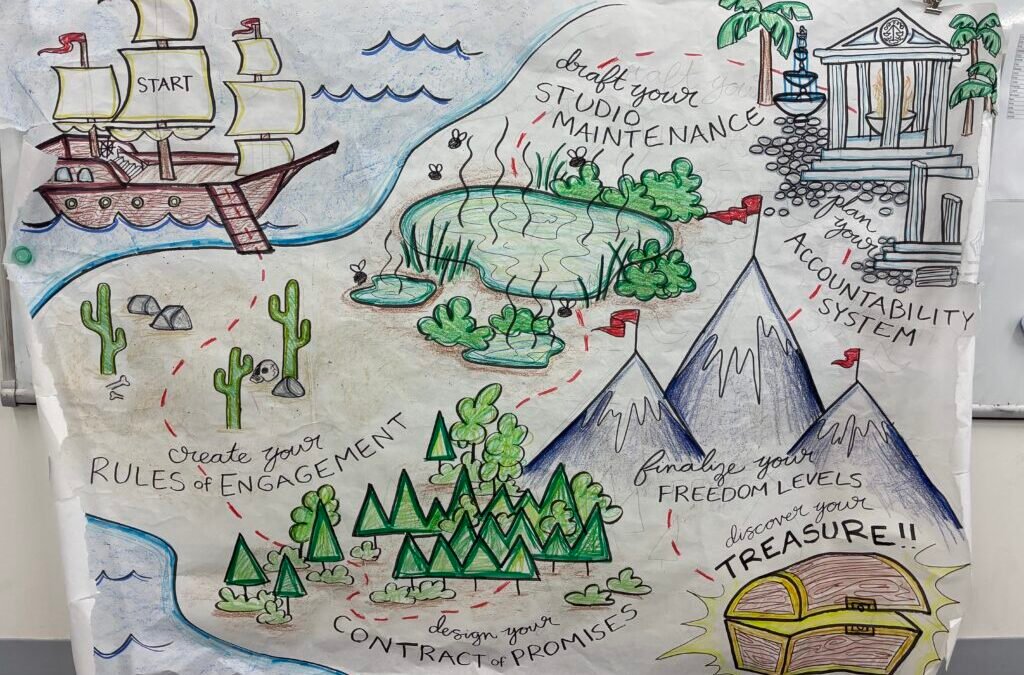 START
draft your
STUDIO
MAINTENANCE
plan
your
ACCOUNTABILITY
SYSTEM
create your
RULES of ENGAGEMENT
finalize your
FREEDOM LEVELS
discover your
TREASURE!!
design your
CONTRACT of PROMISES